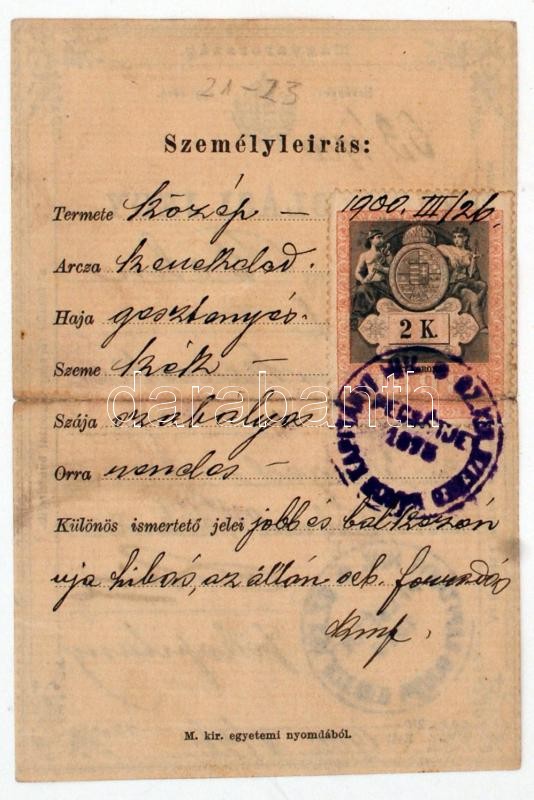 21-23
Személyleirás:
Termete közép –
1900. III/26.
Arcza
Haja gesztenyés
2 K.
Szeme kék –
Szája szabályos
Orra rendes –
Különös ismertető jelei jobb és bal kezén
ujja hibás, az állán seb forradás
kmf.
M. kir. egyetemi nyomdából.
darabanth